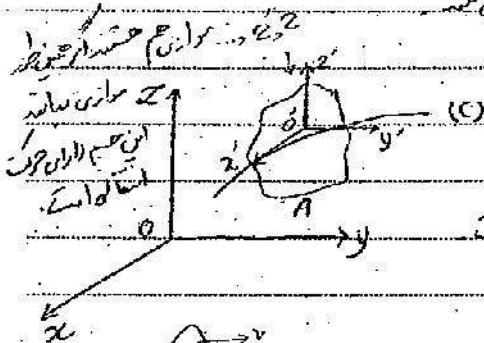 z, z' و... موازی هم هستند اگر همین طور
موازی بمانند
این جسم دارای حرکت
انتقالی است.
z
z'
o'
y'
(C)
z'
A
o
y
x
v